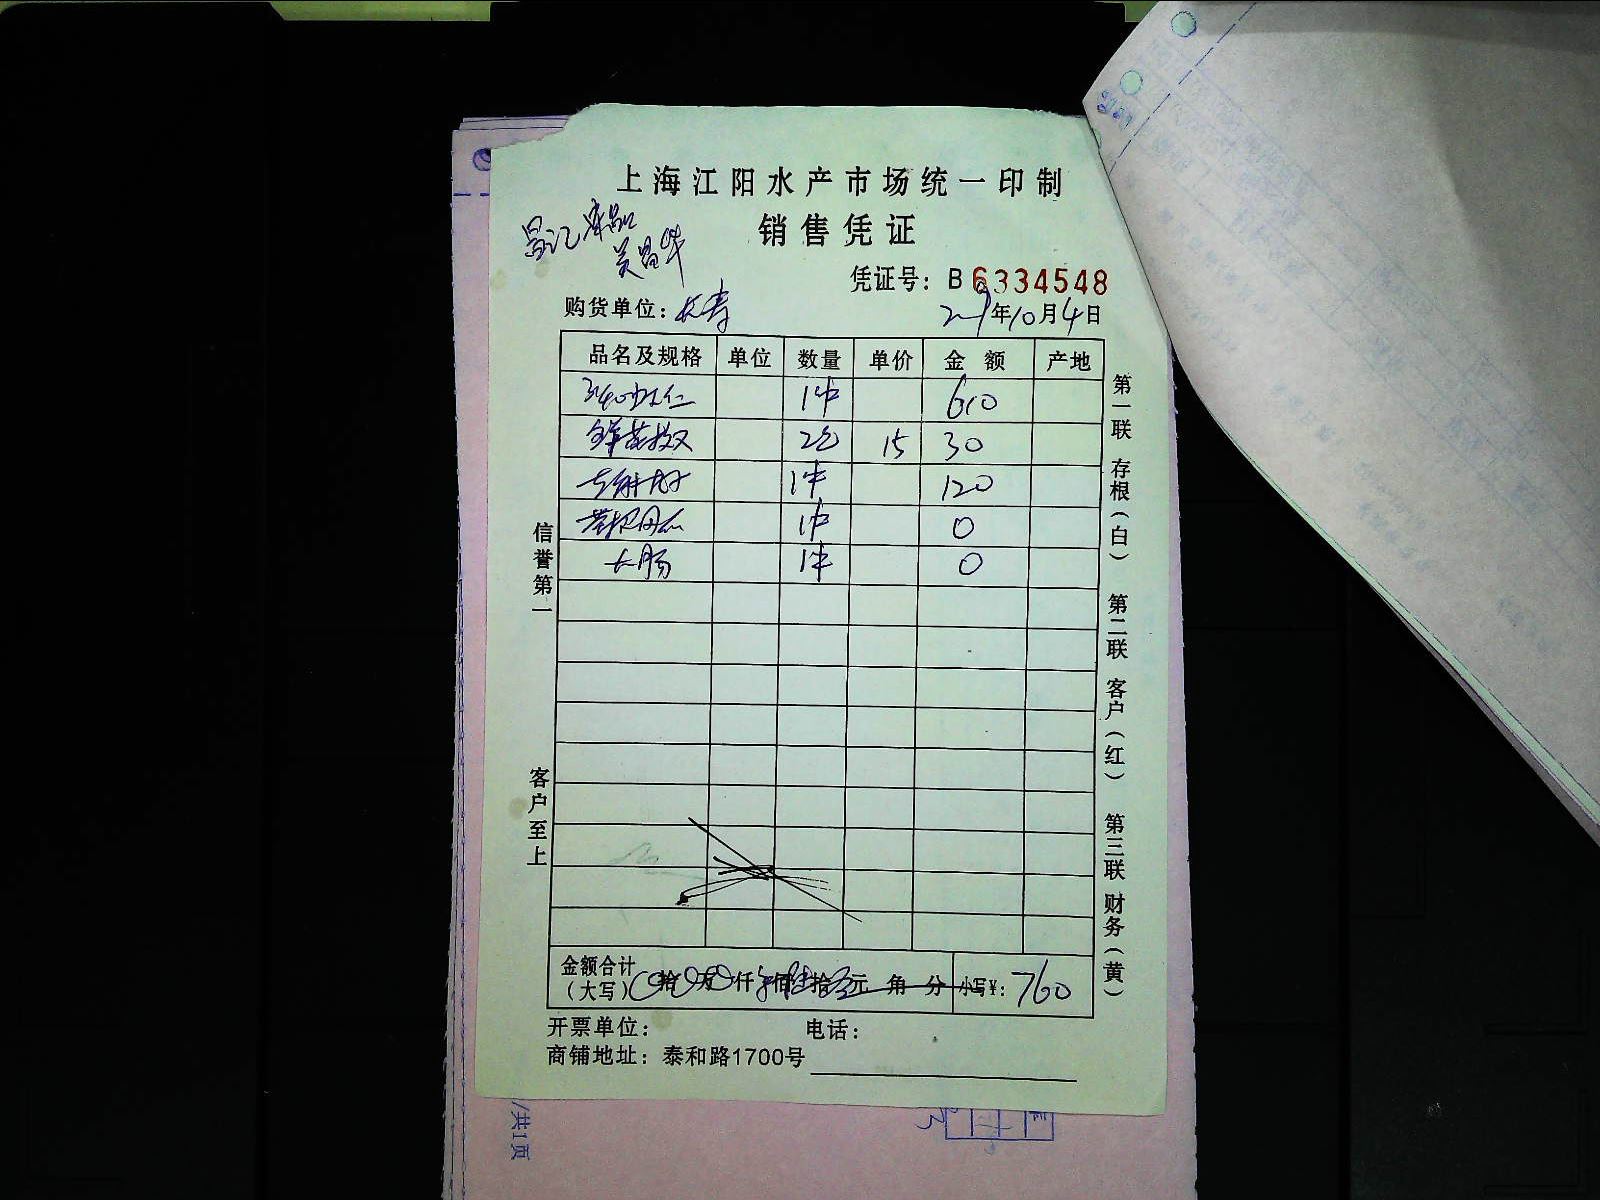 上海江阳水产市场统一印制
销售凭证
吴昌华
凭证号：B 6334548
购货单位：长寿
年10月4日
品名及规格 单位 数量 单价 金额 产地
3/40虾仁 1件 610
2包 15 30
1件 120
1件 0
大肠 1件 0
信誉第一
客户至上
第一联 存根（白）
第二联 客户（红）
第三联 财务（黄）
金额合计（大写） 拾 万 仟 佰 拾 元 角 分 小写¥：760
开票单位： 电话：
商铺地址：泰和路1700号
/共1页